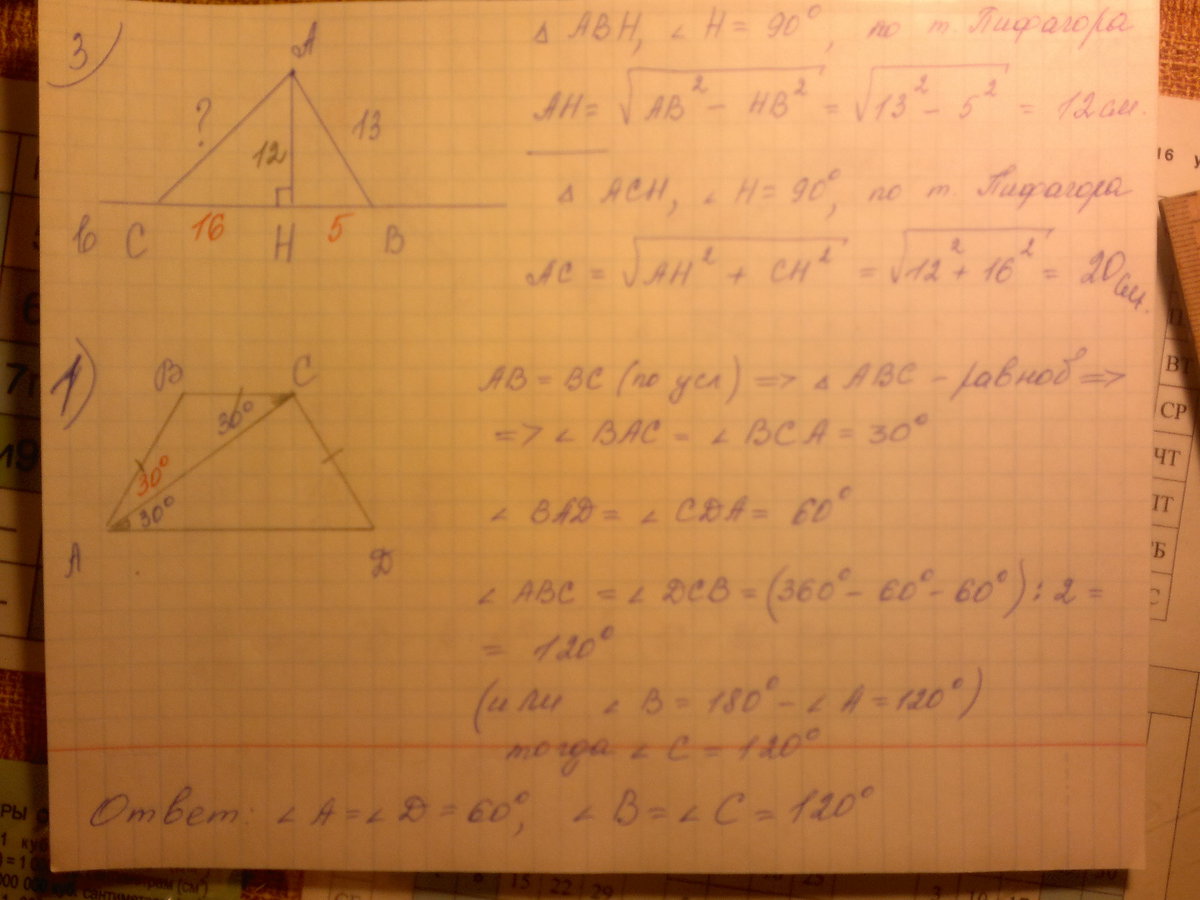 3)
A
?
13
12
в C 16 H 5 B
△ ABH, ∠ H = 90°, по т. Пифагора
AH = √(AB² - HB²) = √(13² - 5²) = 12 см.
△ ACH, ∠ H = 90°, по т. Пифагора
AC = √(AH² + CH²) = √(12² + 16²) = 20 см.
1)
B C
30°
30°
30°
A D
AB = BC (по усл) => △ ABC - равноб =>
=> ∠ BAC = ∠ BCA = 30°
∠ BAD = ∠ CDA = 60°
∠ ABC = ∠ DCB = (360° - 60° - 60°) : 2 =
= 120°
(или ∠ B = 180° - ∠ A = 120°)
тогда ∠ C = 120°
Ответ: ∠ A = ∠ D = 60°, ∠ B = ∠ C = 120°
16 у
ВТ
СР
ЧТ
ПТ
С
15 22 29